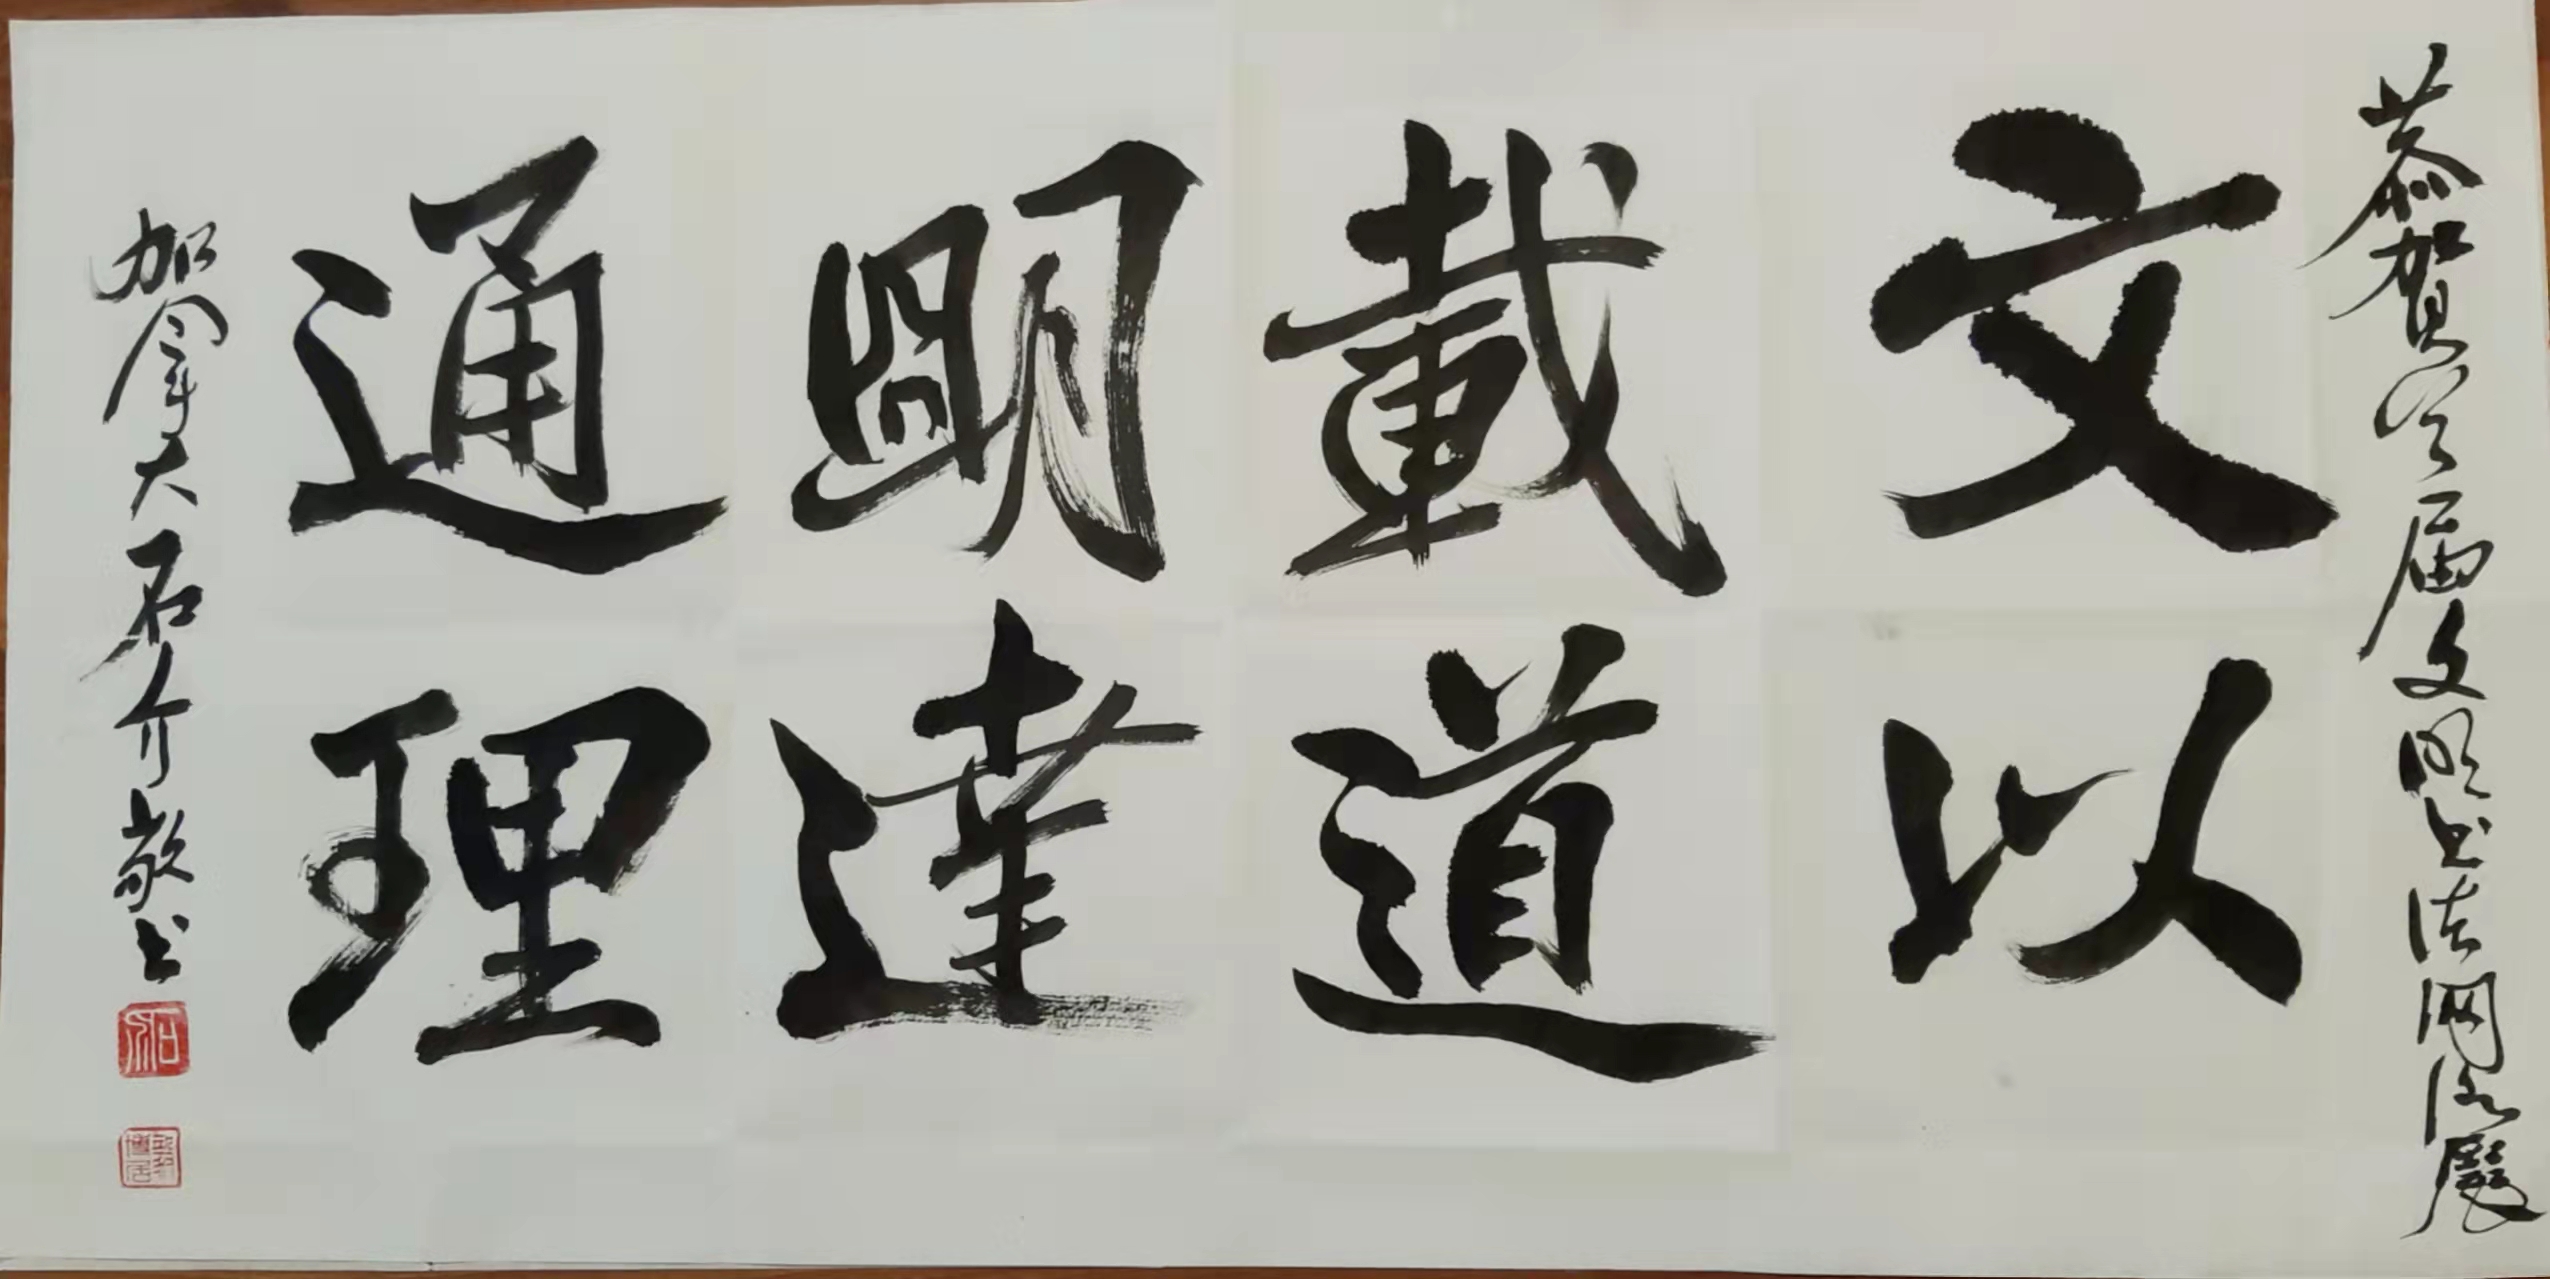 恭賀今屆文明书法网络展
文以
載道
明達
通理
加拿大石介敬书